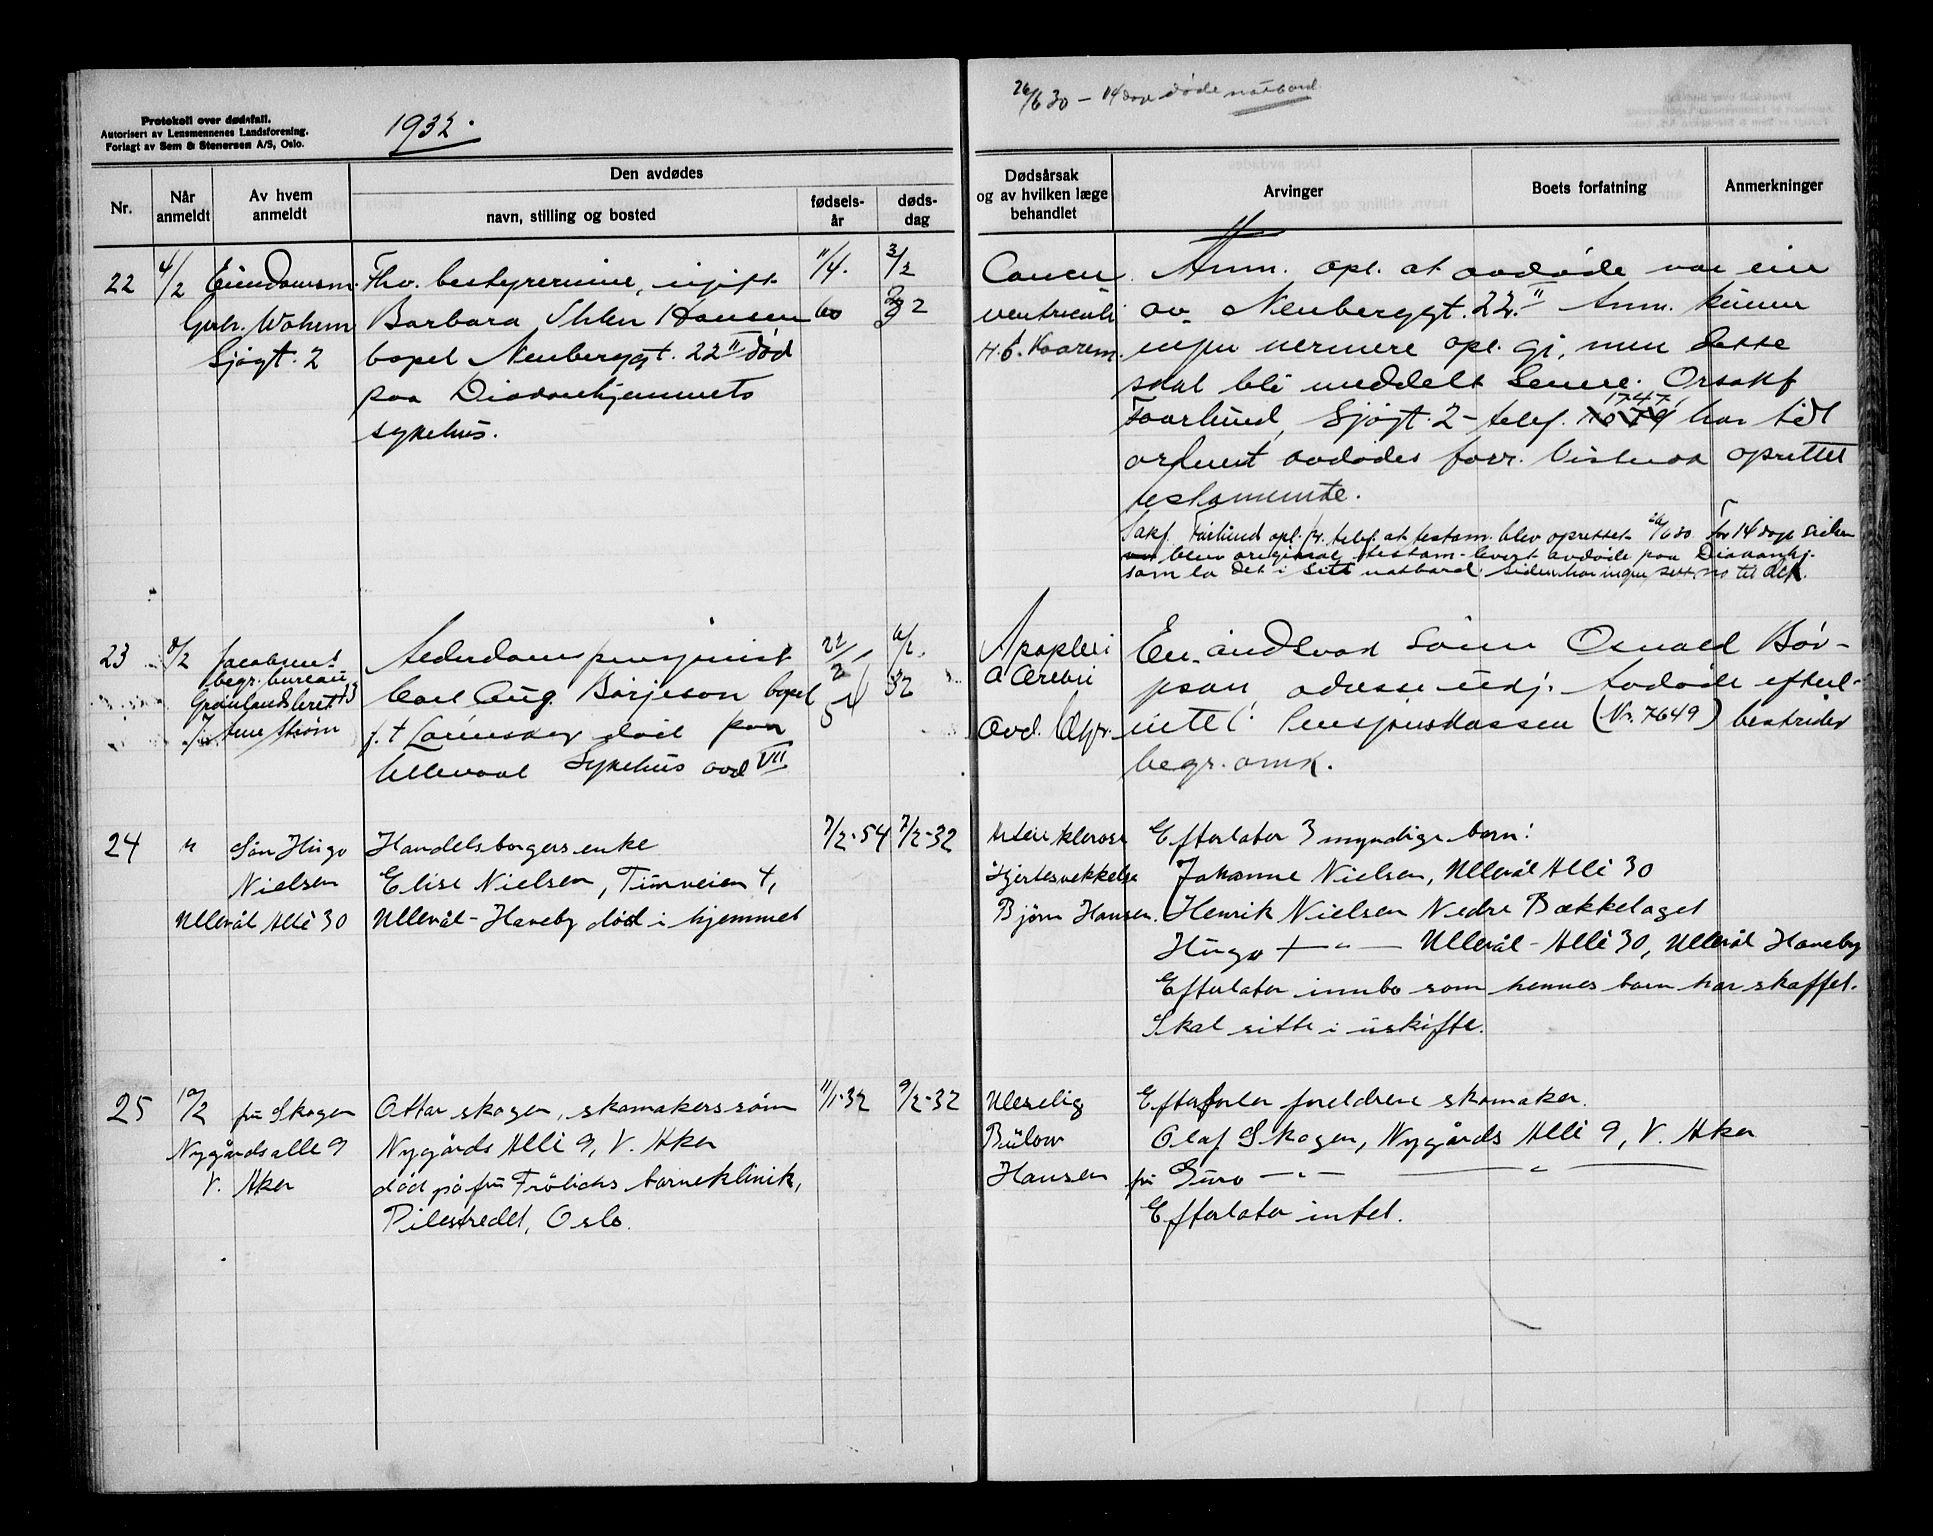 Protokoll over dødsfall.
Autorisert av Lensmennenes Landsforening.
Forlagt av Sem & Stenersen A/S, Oslo.
1932.
26/6 30 – 14 dage døde natbord
Nr.
Når anmeldt
Av hvem anmeldt
Den avdødes
navn, stilling og bosted
fødsels-år
døds-dag
Dødsårsak og av hvilken læge behandlet
Arvinger
Boets forfatning
Anmerkninger
22 4/2 Eiendomsm. Fhv. bestyrerinne, ugift 11/4. 3/2
Barbara Hansen 60 32
Sjøgt. 2 bopel Neuberggt. 22 II død
paa Diakonhjemmets
sykehus.
Cancer
ventriculi
Anm. opl. at avdøde var eier
av Neuberggt. 22. II Anm. kunne
ingen nermere opl. gi, men dette
skal bli meddelt senere. Orsakf
Faarlund, Sjøgt. 2 – telef. 1747, har tidl
ordnet avdødes forr. oprettet
testamente.
Sakf. Faarlund opl. pr. telef. at testam. blev oprettet 26/6 30 for 14 dage siden
blev original testam. levert avdøde paa Diakonhj.
som la det i sitt natbord. Siden har ingen sett no til det.
23 8/2 Jacobsens
begr. bureau
Grønlandsleret 13
Arne Strøm
pensjonist 22/2 54 6/2 32
Carl Aug. Börjeson bopel
f. t Lørenskog død paa
Ullevaal Sykehus avd VII
Apoplexi
a cerebri
En sønn Osvald Bör-
jeson, adresse udj. Avdøde efterl-
intet. Pensjonskassen (Nr. 7649) bestrider
begr. omk.
24 " Søn Hugo Handelsborgers enke 7/2-54 7/2-32
Nielsen Elise Nielsen, Timveien 4,
Ullevål Allè 30 Ullevål-Haveby død i hjemmet
Arterieklerose
Hjertesvekkelse
Bjørn Hansen.
Efterlater 3 myndige barn:
Johanne Nielsen, Ullevål Allè 30
Henrik Nielsen Nedre Bækkelaget
Hugo – " – Ullevål-Allè 30, Ullevål Haveby
Efterlater innbo som hennes barn har skaffet.
Skal sitte i uskifte.
25 10/2 fru Skogen Ottar skogen, skomakers sønn 11/1-32 9/2-32
Nygårdsalle 9 Nygårds Allè 9, V. Aker
V. Aker død på fru Frölichs barneklinik,
Pilestredet, Oslo.
Uleselig
Bülow
Hansen
Efterlater foreldrene skomaker.
Olaf Skogen, Nygårds Allè 9, V. Aker
fru Guro – " – – " –
Efterlater intet.